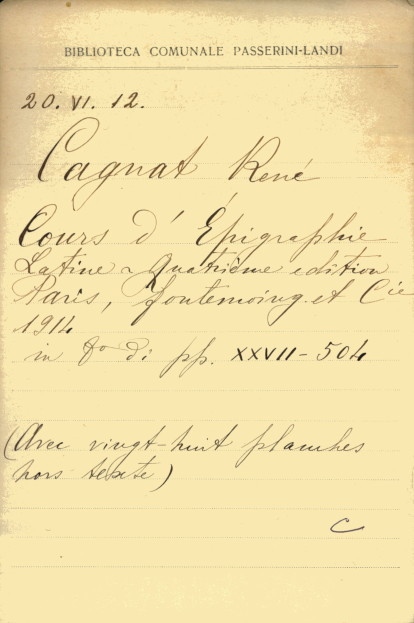 BIBLIOTECA COMUNALE PASSERINI-LANDI
20. VI. 12.
Cagnat René
Cours d' Épigraphie
Latine - Quatrième edition
Paris, Fontemoing et Cie
1914
in 8° di pp. XXVII - 504
(Avec vingt-huit planches
hors texte)
C